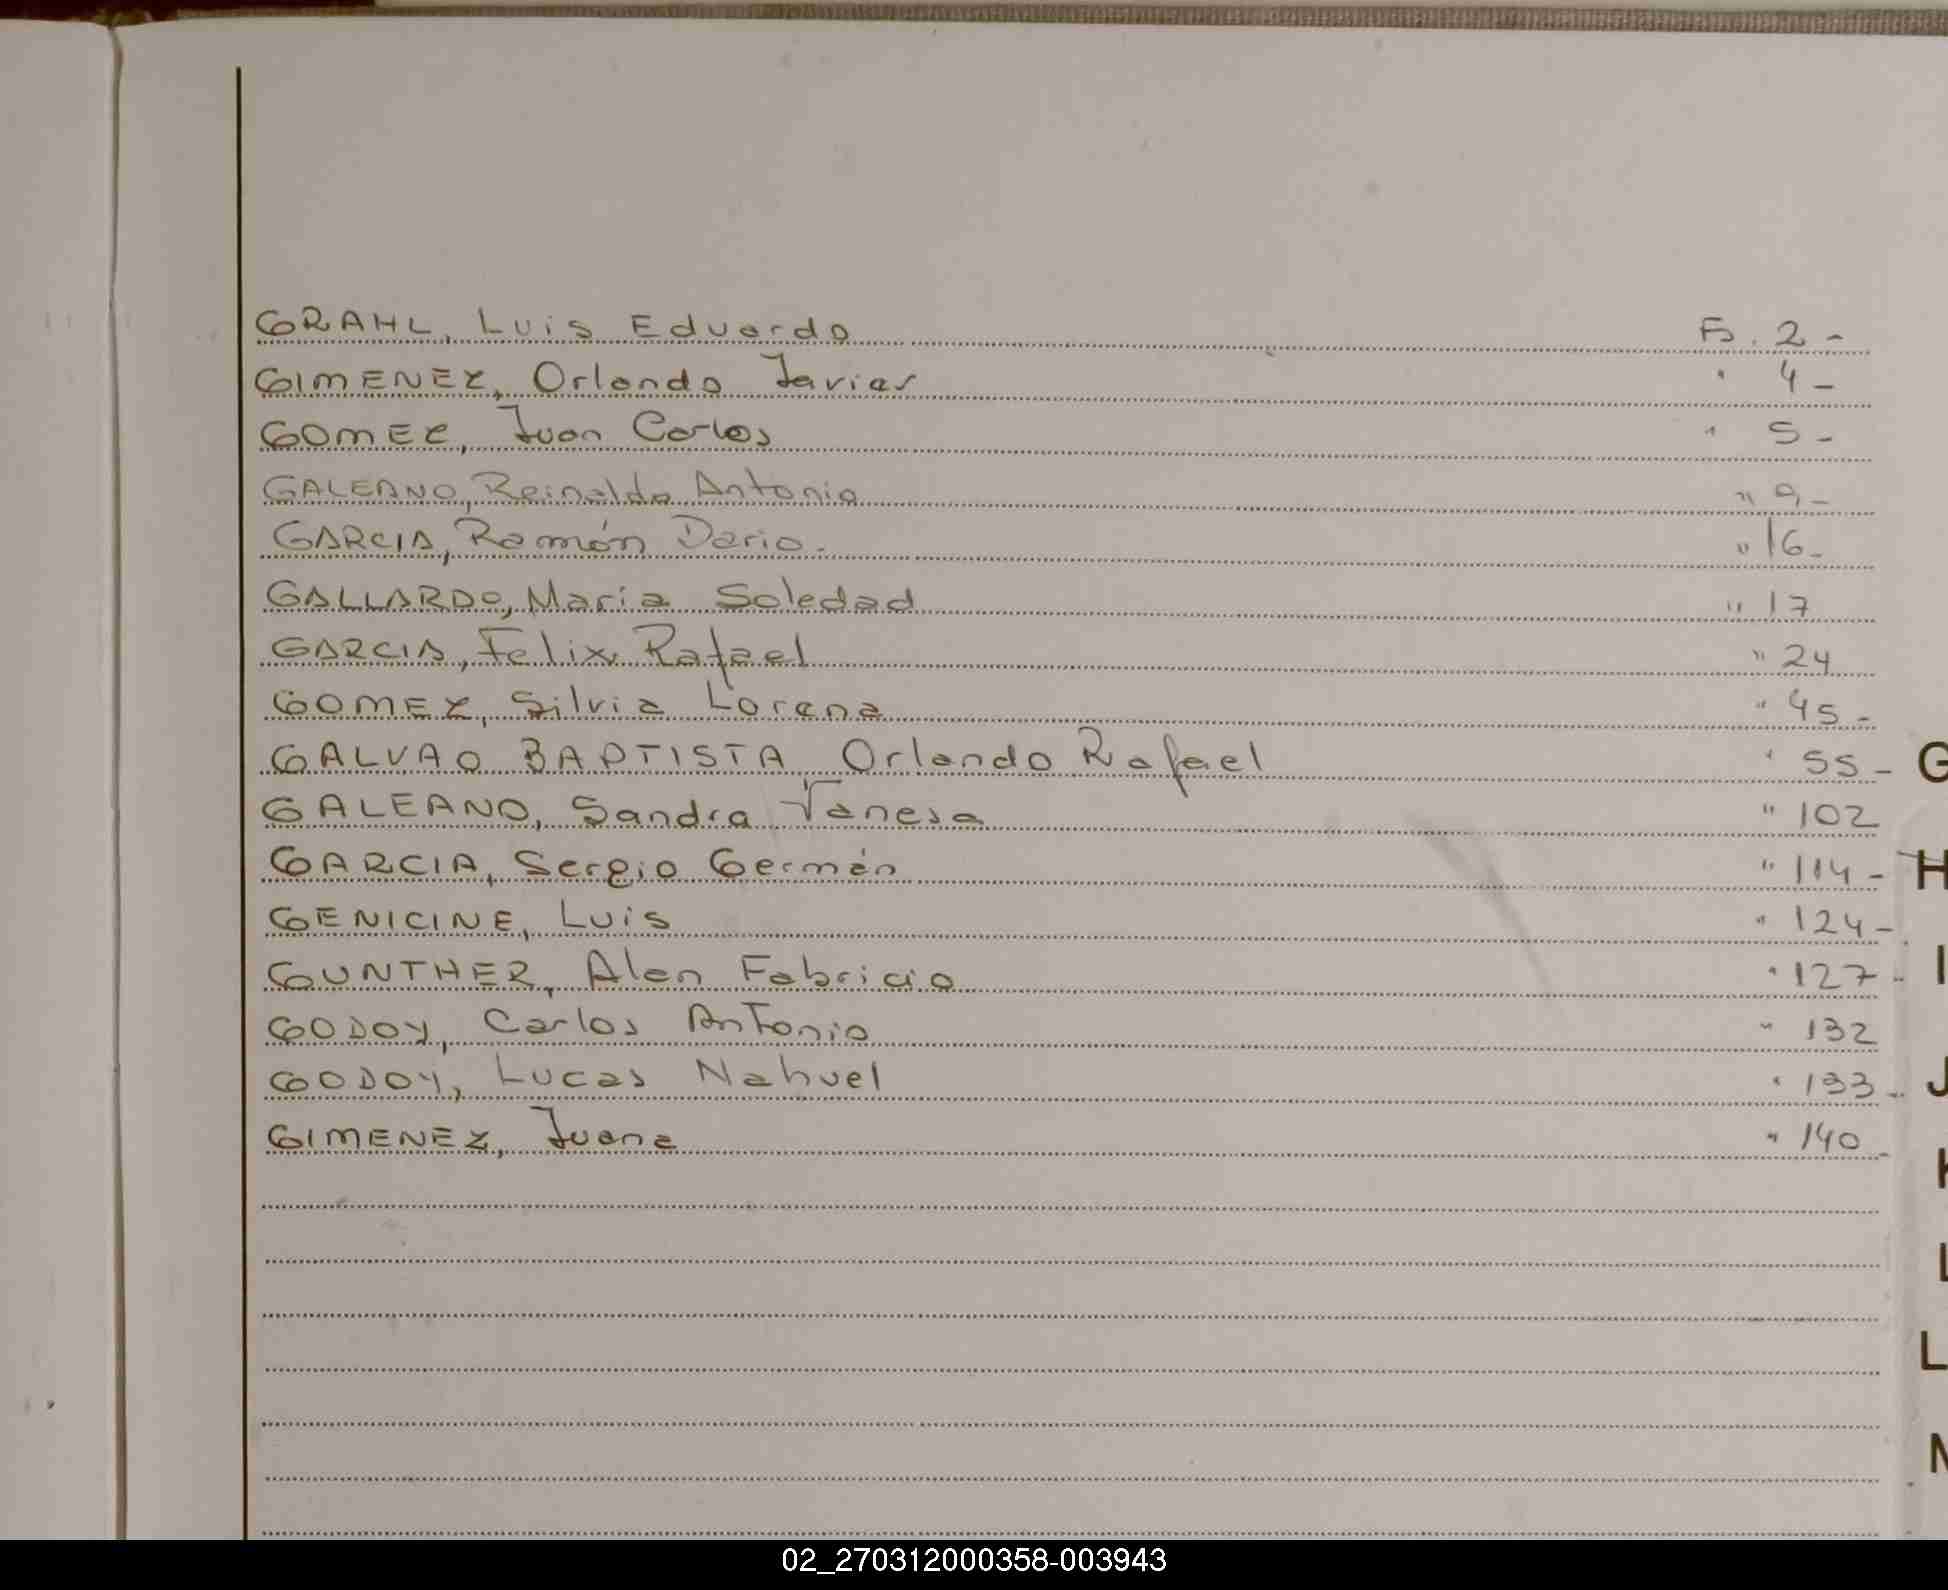 GRAHL, Luis Eduardo Fs. 2 -
GIMENEZ, Orlando Javier " 4 -
GOMEZ, Juan Carlos " 5 -
GALEANO, Reinaldo Antonio " 9 -
GARCIA, Ramón Dario. " 16 -
GALLARDO, Maria Soledad " 17
GARCIA, Felix Rafael " 24
GOMEZ, Silvia Lorena " 45 -
GALVAO BAPTISTA, Orlando Rafael " 55 -
GALEANO, Sandra Vanesa " 102
GARCIA, Sergio Germán " 114 -
GENICINE, Luis " 124 -
GUNTHER, Alen Fabricio " 127 -
GODOY, Carlos Antonio " 132
GODOY, Lucas Nahuel " 133 -
GIMENEZ, Juana " 140 -
G
H
I
J
K
L
L
M
02_270312000358-003943